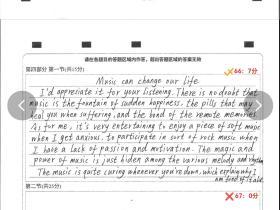 请在各题目的答题区域内作答，超出答题区域的答案无效
第四部分 第一节(共15分)
66: 7分
Music can change our life
I'd appreciate it for your listening. There is no doubt that
music is the fountain of sudden happiness, the pills that may
heal you when suffering, and the bond of the remote memories.
As for me, it's very entertaining to enjoy a piece of soft music
when I get anxious, to participate in sort of rock music when
I have a lack of passion and motivation. The magic and
power of music is just hiden among the various melody and rhythm
The music is quite curing whenever you're down, which explain why I
am fond of it
第二节(共25分)
67: 0分